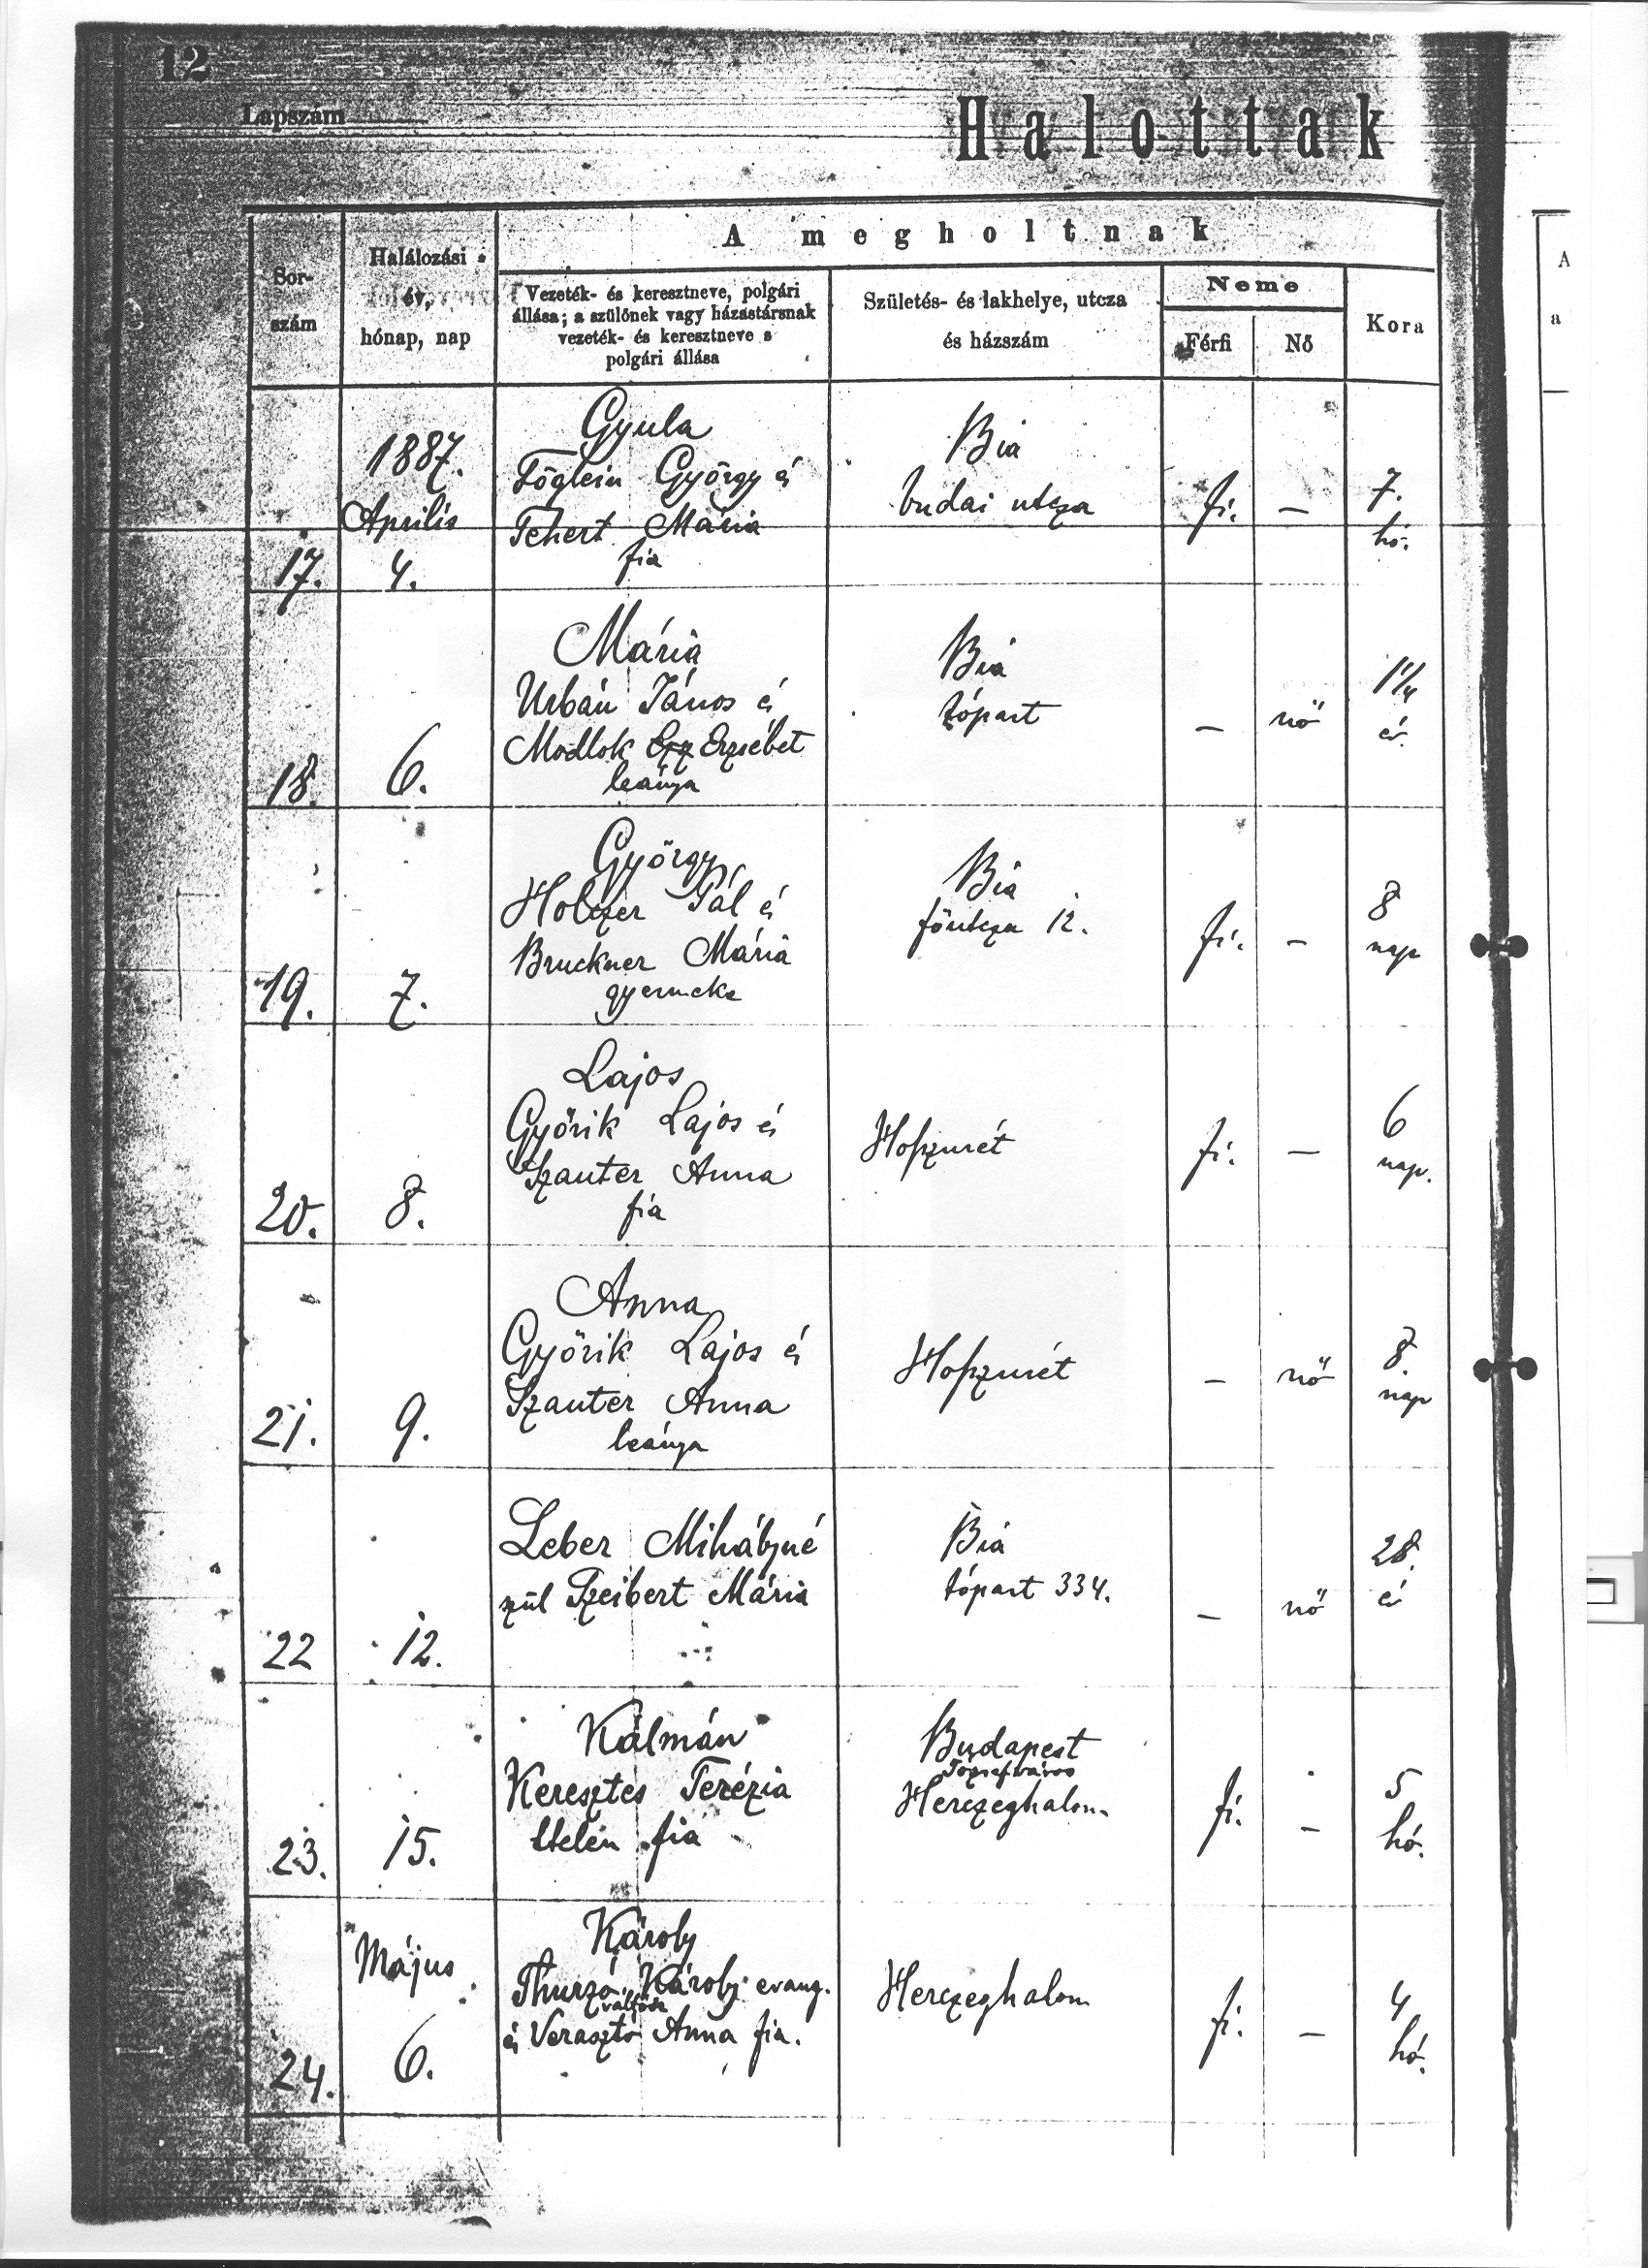 12
Lapszám
Halottak
A megholtnak
Sor-
szám
Halálozási
év,
hónap, nap
Vezeték- és keresztneve, polgári
állása; a szülőnek vagy házastársnak
vezeték- és keresztneve s
polgári állása
Születés- és lakhelye, utcza
és házszám
Neme
Férfi
Nő
Kora
A
a
1887.
Április
17.
4.
Gyula
Föglein György és
Fehert Mária
fia
Bia
budai utcza
fi.
—
7.
hó.
18.
6.
Mária
Urbán János és
Modlok Erzsébet
leánya
Bia
tópart
—
nő
1 1/4
év.
19.
7.
György
Holczer Pál és
Bruckner Mária
gyermeke
Bia
főutcza 12.
fi.
—
8
nap
20.
8.
Lajos
Győrik Lajos és
Szauter Anna
fia
Hoszurét
fi.
—
6
nap.
21.
9.
Anna
Győrik Lajos és
Szauter Anna
leánya
Hoszurét
—
nő
8.
nap
22
12.
Leber Mihályné
szül Szeibert Mária
Bia
tópart 334.
—
nő
28.
év
23.
15.
Kálmán
Keresztes Terézia
fia
Budapest
Józsefváros
Herczeghalom
fi.
—
5
hó.
Május
24.
6.
Károly
Thurzó Károly evang.
és Verasztó Anna fia.
Herczeghalom
fi.
—
4
hó.